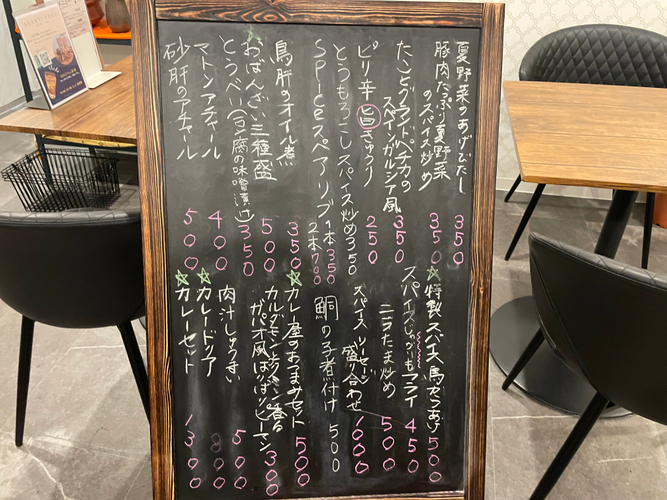 夏野菜のあげびたし 350
豚肉たっぷり夏野菜
のスパイス炒め 350
たことグランドペチカの
スペインガルシア風 350
ピリ辛旨きゅうり 250
とうもろこしスパイス炒め 350
SPiceスペアリブ 1本350
2本700
鳥肝のオイル煮 350
おばんざい三種盛 500
とうべい(豆腐の味噌漬け) 350
マトンアチャール 400
砂肝のアチャール 500
☆特製スパイス鳥からあげ 500
スパイスじゃがいもフライ 450
ニラたま炒め 500
スパイスソーセージ
盛り合わせ 1000
鯛の子煮付け 500
☆カレー屋のおつまみセット 500
カルダモンとレモン香る
ガパオ風ぱりぱりピーマン 300
肉汁しゅうまい 500
☆カレードリア 800
☆カレーセット 1300